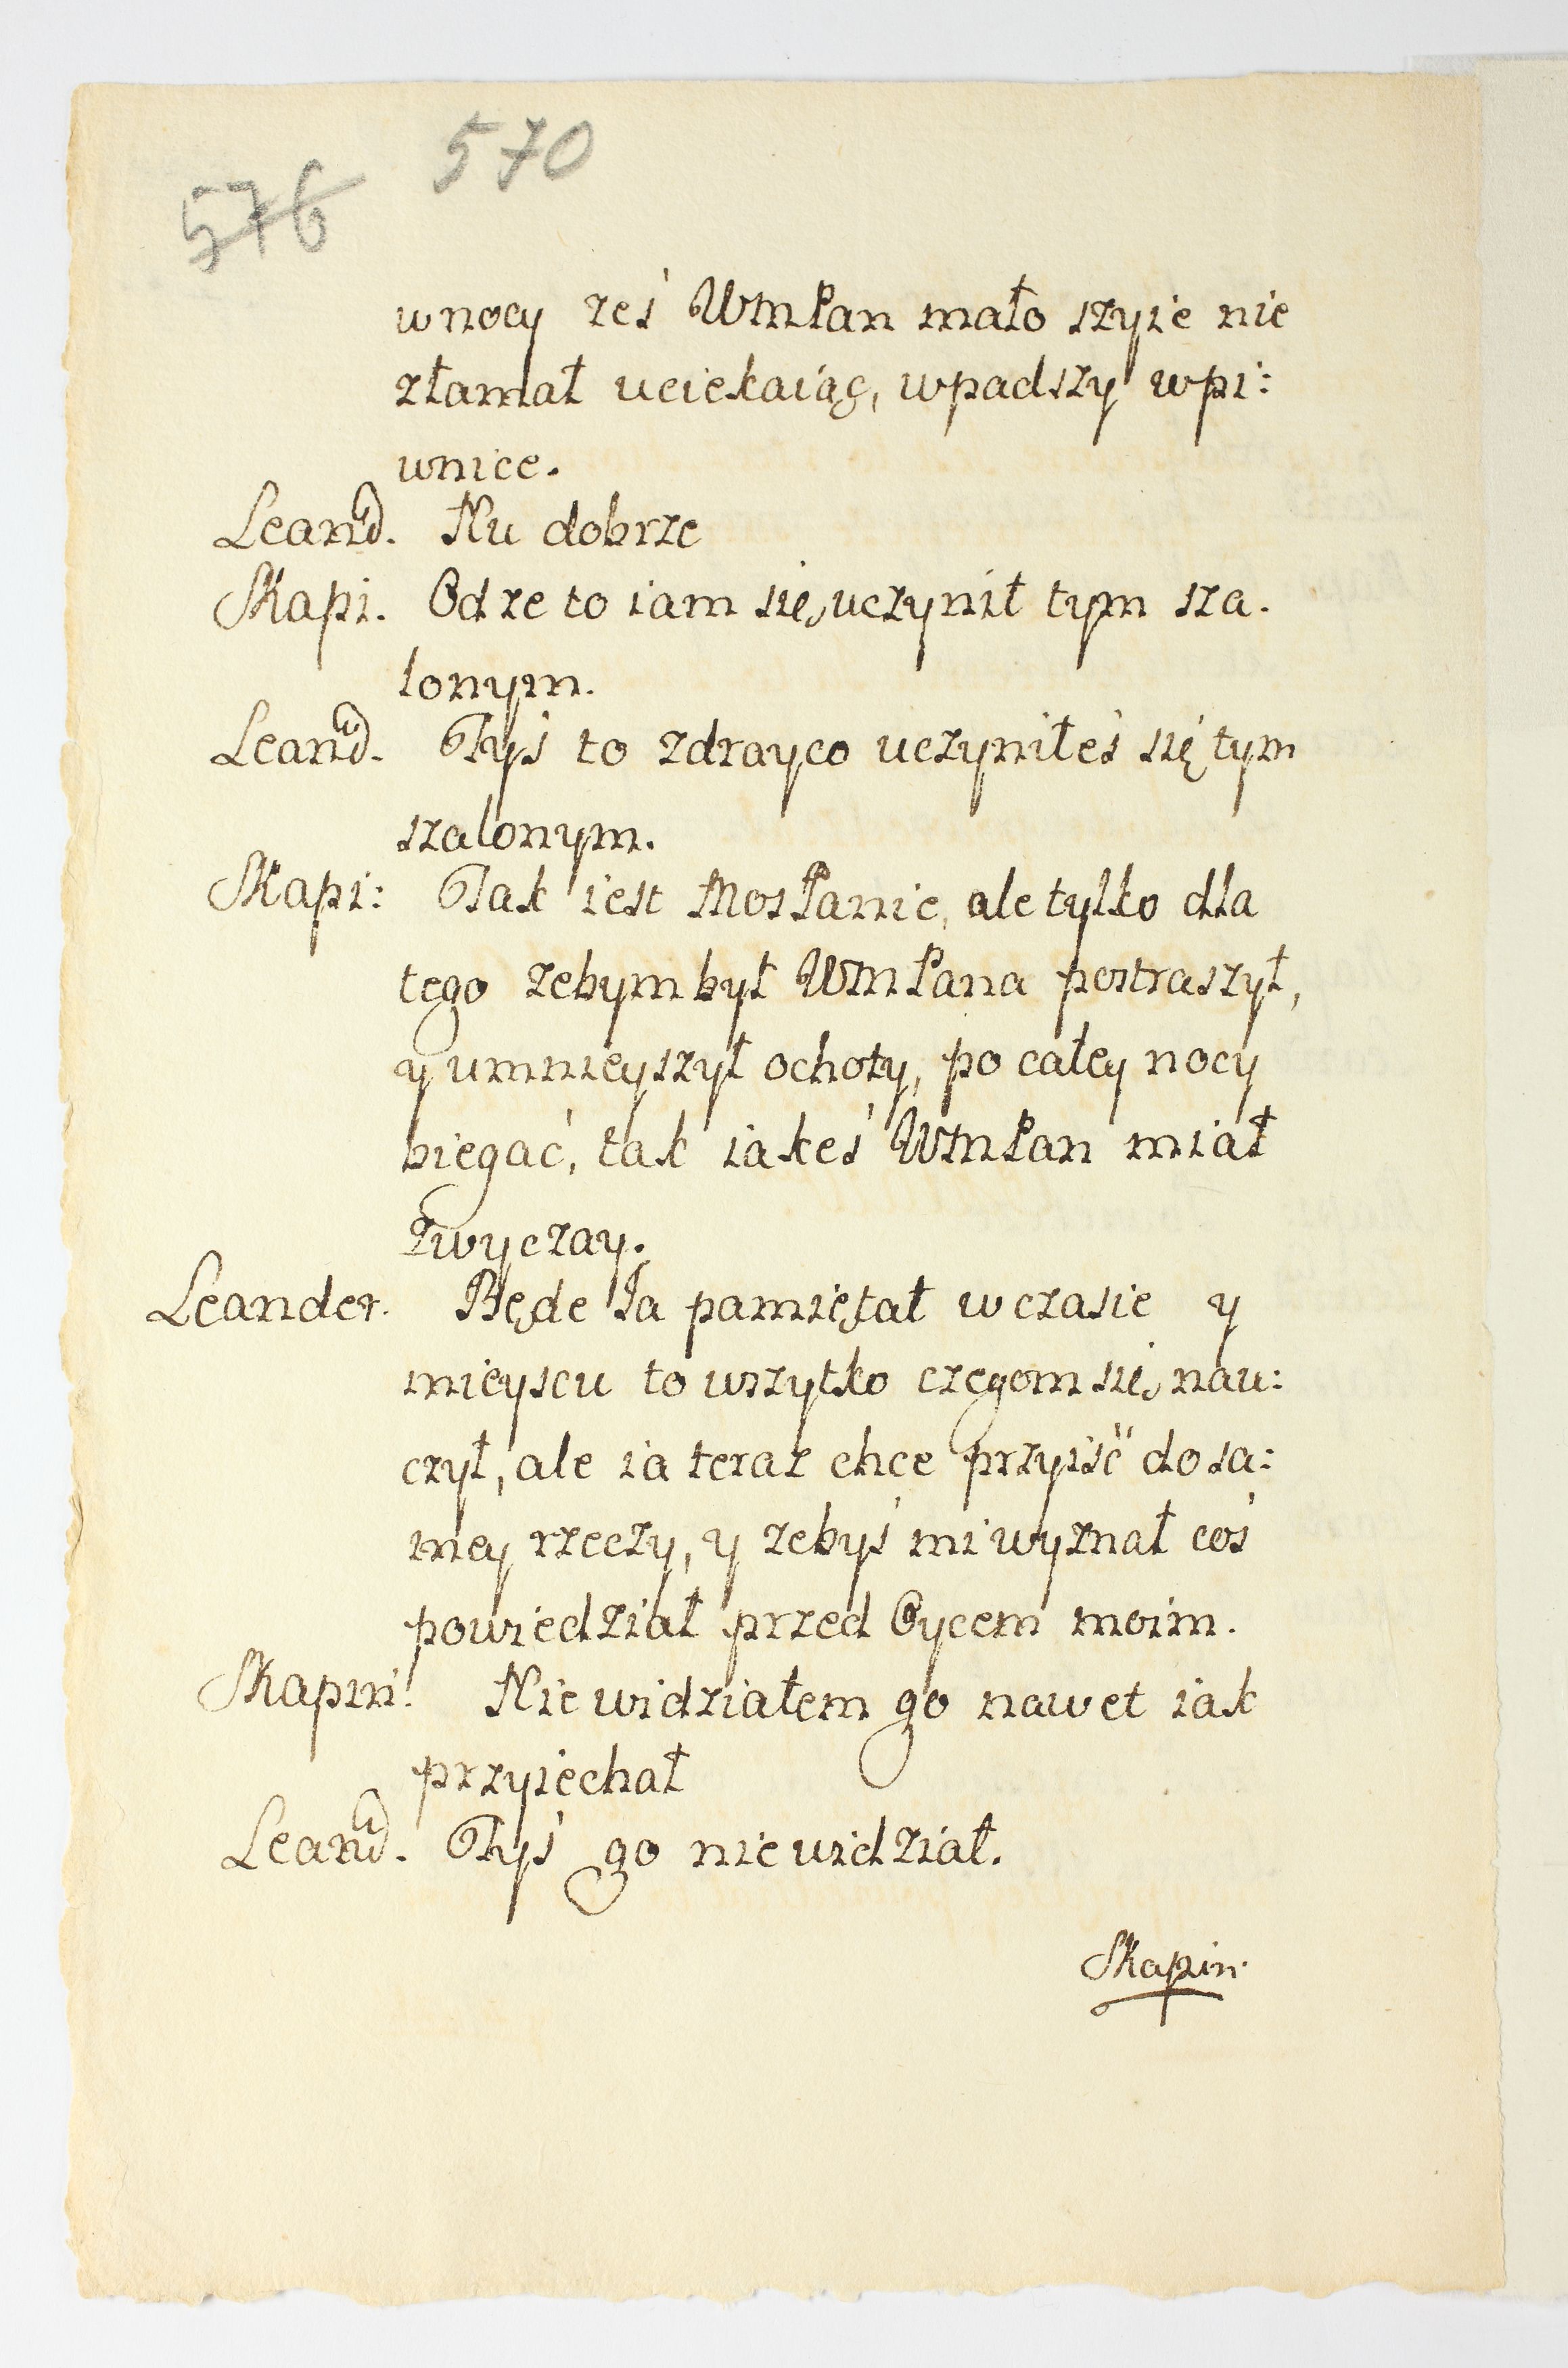 570
576
w nocy zes WMPan mało szyie nie
złamał uciekaiąc, wpadszy w pi:
wnice.
Leand. Nu dobrze
Skapi. Od ze to iam się uczynił tym sza.
lonym.
Leand. Tyś to zdrayco uczyniłeś się tym
szalonym.
Skapi: Tak iest MosPanie, ale tylko dla
tego zebym był WMPana postraszył,
y umnieyszył ochoty, po całey nocy
biegać, tak iakeś WMPan miał
zwyczay.
Leander. Będe Ja pamiętał w czasie y
mieyscu to wszytko czegom się nau:
czył, ale ia teraz chce przyiść do sa:
mey rzeczy, y zebyś mi wyznał coś
powiedział przed Oycem moim.
Skapin: Nie widziałem go nawet iak
przyiechał
Leand. Tyś go nie widział.
Skapin.